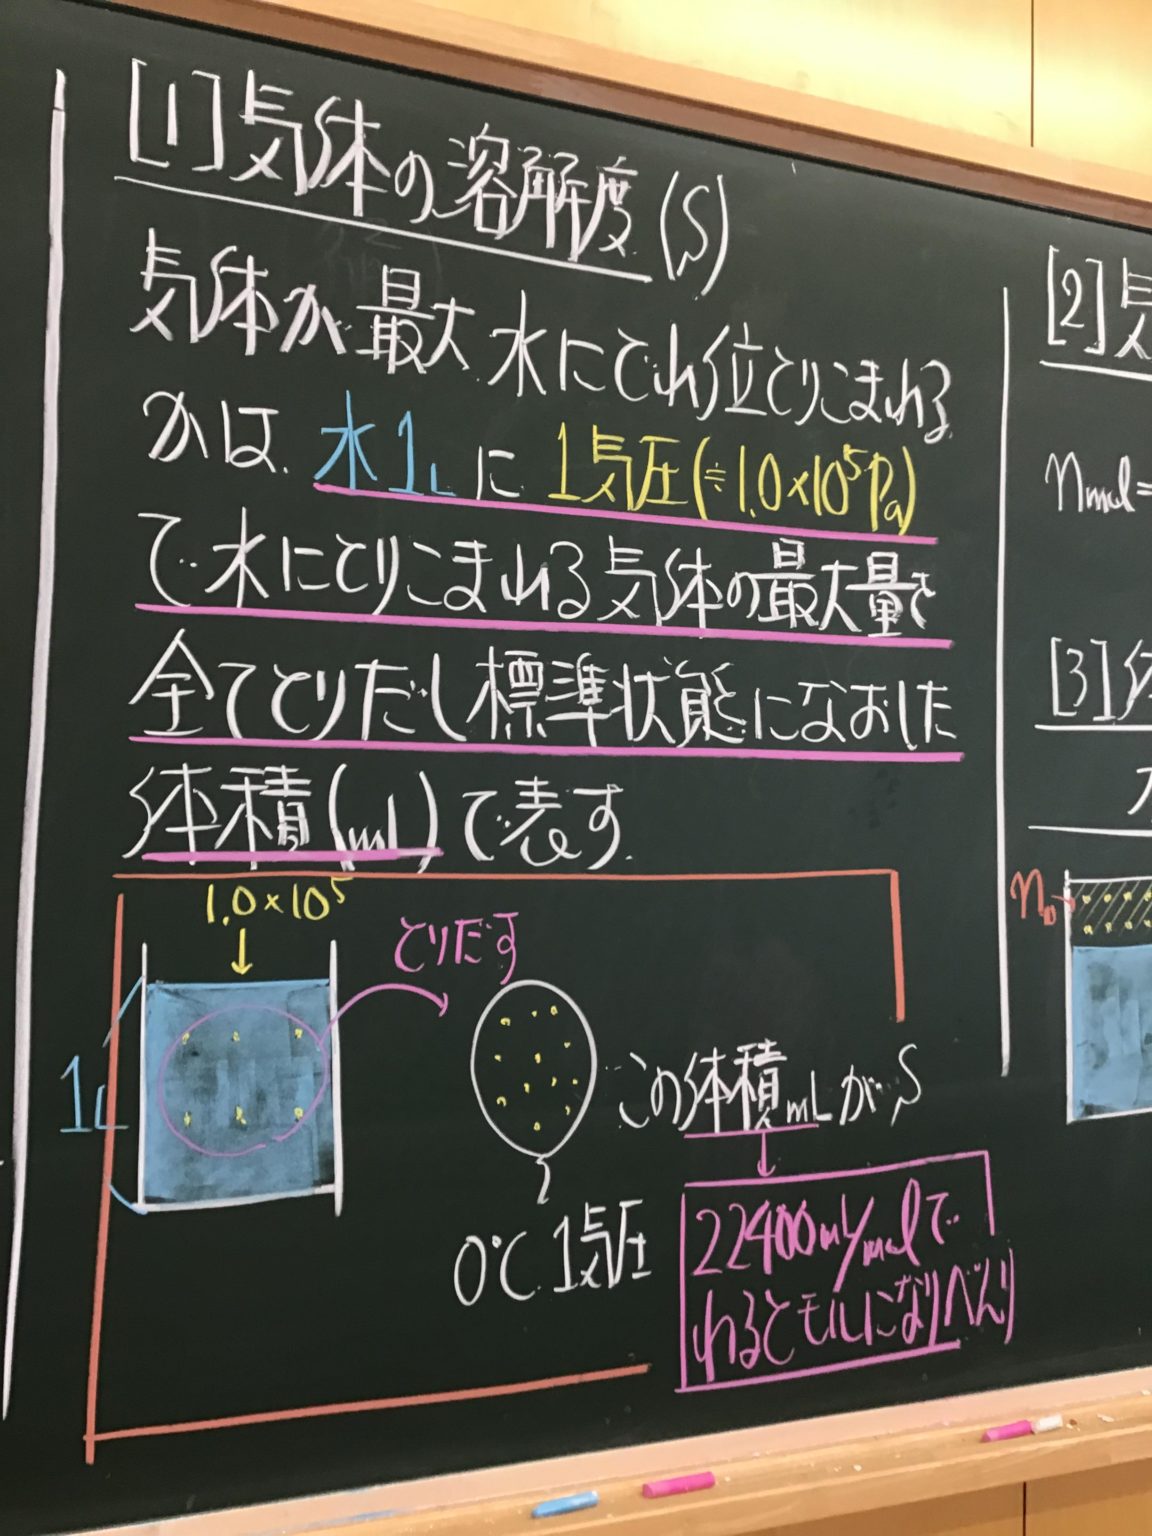 [1]気体の溶解度(S)
気体が最大水にどれ位とりこまれる
かは、水1Lに1気圧(≒1.0×10⁵Pa)
で水にとりこまれる気体の最大量を
全てとりだし標準状態になおした
体積(mL)で表す。
1.0×10⁵
とりだす
1L
この体積mLがS
0℃ 1気圧
22400mL/molで
わるとモルになりべんり
[2]気
nmol=
[3]
n₀